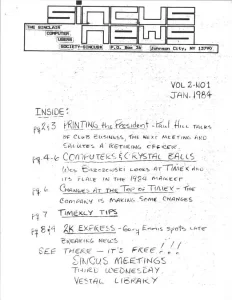 SINCUS
NEWS
THE SINCLAIR
COMPUTER
USERS
SOCIETY-SINCUS P.O. Box 36 Johnson City, NY 13790
VOL 2-NO1
JAN. 1984
INSIDE:
pg 2,3 PRINTING the President - Paul Hill TALKS
OF CLUB BUSINESS, THE NEXT MEETING AND
SALUTES A RETIRING OFFICER.
pg 4-6 COMPUTERS & CRYSTAL BALLS
LOOKS @ TIMEX AND
ITS PLACE IN THE 1984 MARKET
pg 6 CHANGES AT THE TOP OF TIMEX - THE
COMPANY IS MAKING SOME CHANGES
pg 7 TIMEXLY TIPS
pg 8,9 2K EXPRESS - Gary Ennis SPOTS LATE
BREAKING NEWS
SEE THERE - IT'S FREE!!!
SINCUS MEETINGS
THIRD WEDNESDAY.
VESTAL LIBRARY